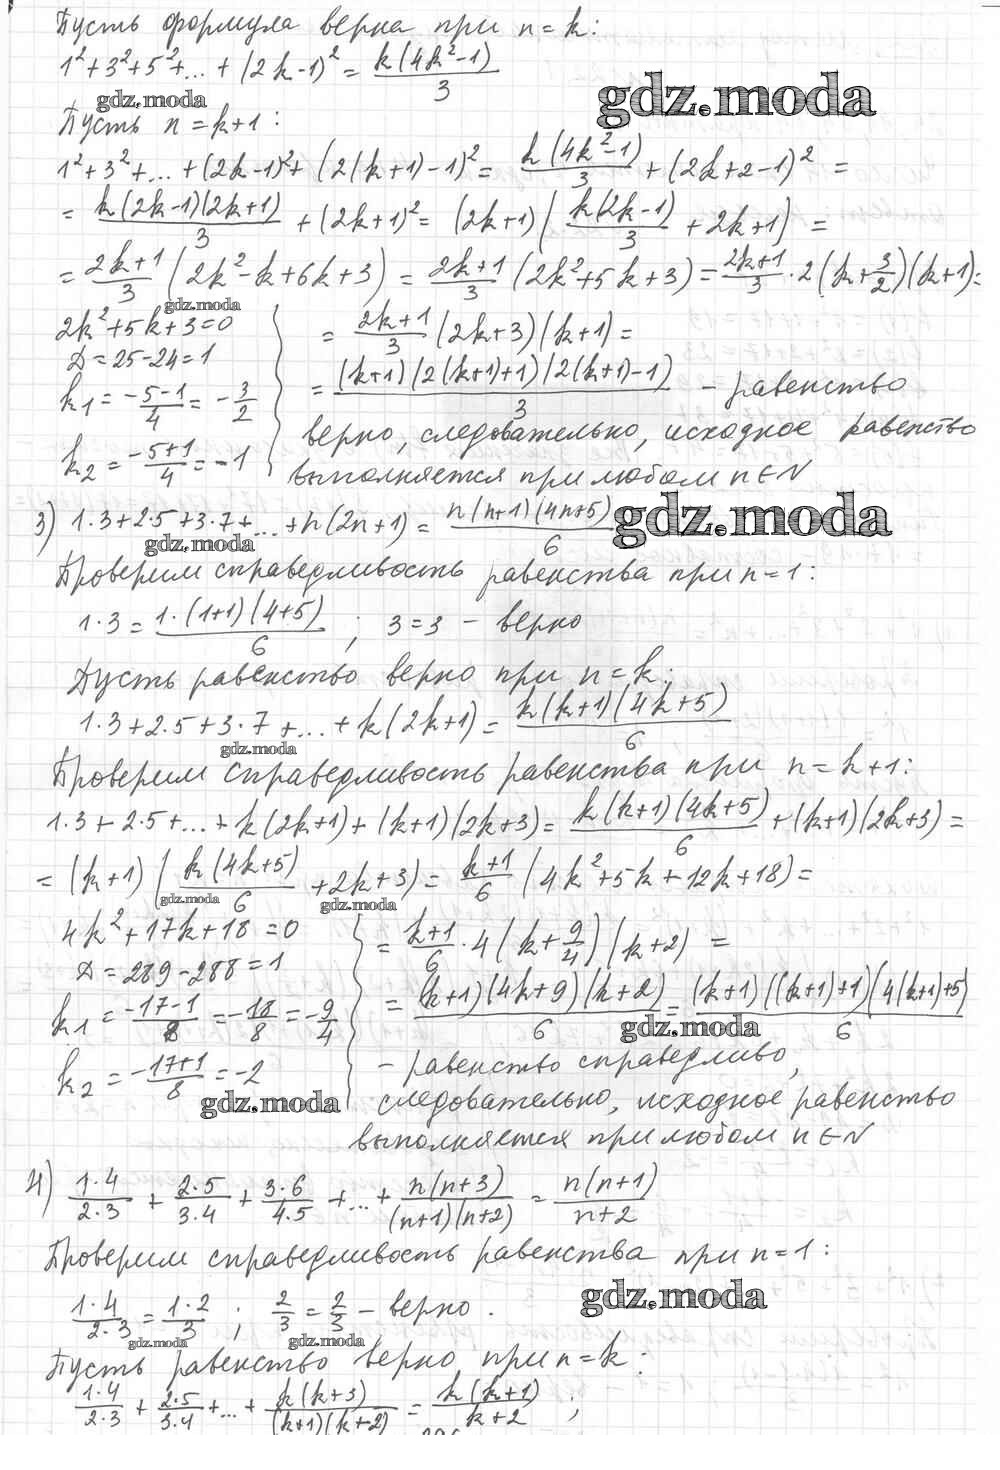 Пусть формула верна при n = k:
1²+3²+5²+...+(2k-1)² = k(4k²-1)/3
gdz.moda
gdz.moda
Пусть n = k+1:
1²+3²+...+(2k-1)²+(2(k+1)-1)² = k(4k²-1)/3 + (2k+2-1)² =
= k(2k-1)(2k+1)/3 + (2k+1)² = (2k+1)(k(2k-1)/3 + 2k+1) =
= 2k+1/3 (2k²-k+6k+3) = 2k+1/3 (2k²+5k+3) = 2k+1/3 · 2(k+3/2)(k+1) =
gdz.moda
2k²+5k+3=0
D = 25-24 = 1
k1 = -5-1/4 = -3/2
k2 = -5+1/4 = -1
= 2k+1/3 (2k+3)(k+1) =
= (k+1)(2(k+1)+1)(2(k+1)-1)/3 – равенство
верно, следовательно, исходное равенство
выполняется при любом n∈N
3) 1·3+2·5+3·7+...+n(2n+1) = n(n+1)(4n+5)/6
gdz.moda
gdz.moda
Проверим справедливость равенства при n=1:
1·3 = 1·(1+1)(4+5)/6 ; 3=3 – верно
Пусть равенство верно при n=k:
1·3+2·5+3·7+...+k(2k+1) = k(k+1)(4k+5)/6
gdz.moda
Проверим справедливость равенства при n=k+1:
1·3+2·5+...+k(2k+1)+(k+1)(2k+3) = k(k+1)(4k+5)/6 + (k+1)(2k+3) =
= (k+1)(k(4k+5)/6 + 2k+3) = k+1/6 (4k²+5k+12k+18) =
gdz.moda
gdz.moda
4k²+17k+18=0
D = 289-288 = 1
k1 = -17-1/8 = -18/8 = -9/4
k2 = -17+1/8 = -2
gdz.moda
= k+1/6 · 4(k+9/4)(k+2) =
= (k+1)(4k+9)(k+2)/6 = (k+1)((k+1)+1)(4(k+1)+5)/6
gdz.moda
– равенство справедливо,
следовательно, исходное равенство
выполняется при любом n∈N
4) 1·4/2·3 + 2·5/3·4 + 3·6/4·5 + ... + n(n+3)/(n+1)(n+2) = n(n+1)/n+2
Проверим справедливость равенства при n=1:
1·4/2·3 = 1·2/3 ; 2/3 = 2/3 – верно.
gdz.moda
gdz.moda
gdz.moda
Пусть равенство верно при n=k:
1·4/2·3 + 2·5/3·4 + ... + k(k+3)/(k+1)(k+2) = k(k+1)/k+2 ;